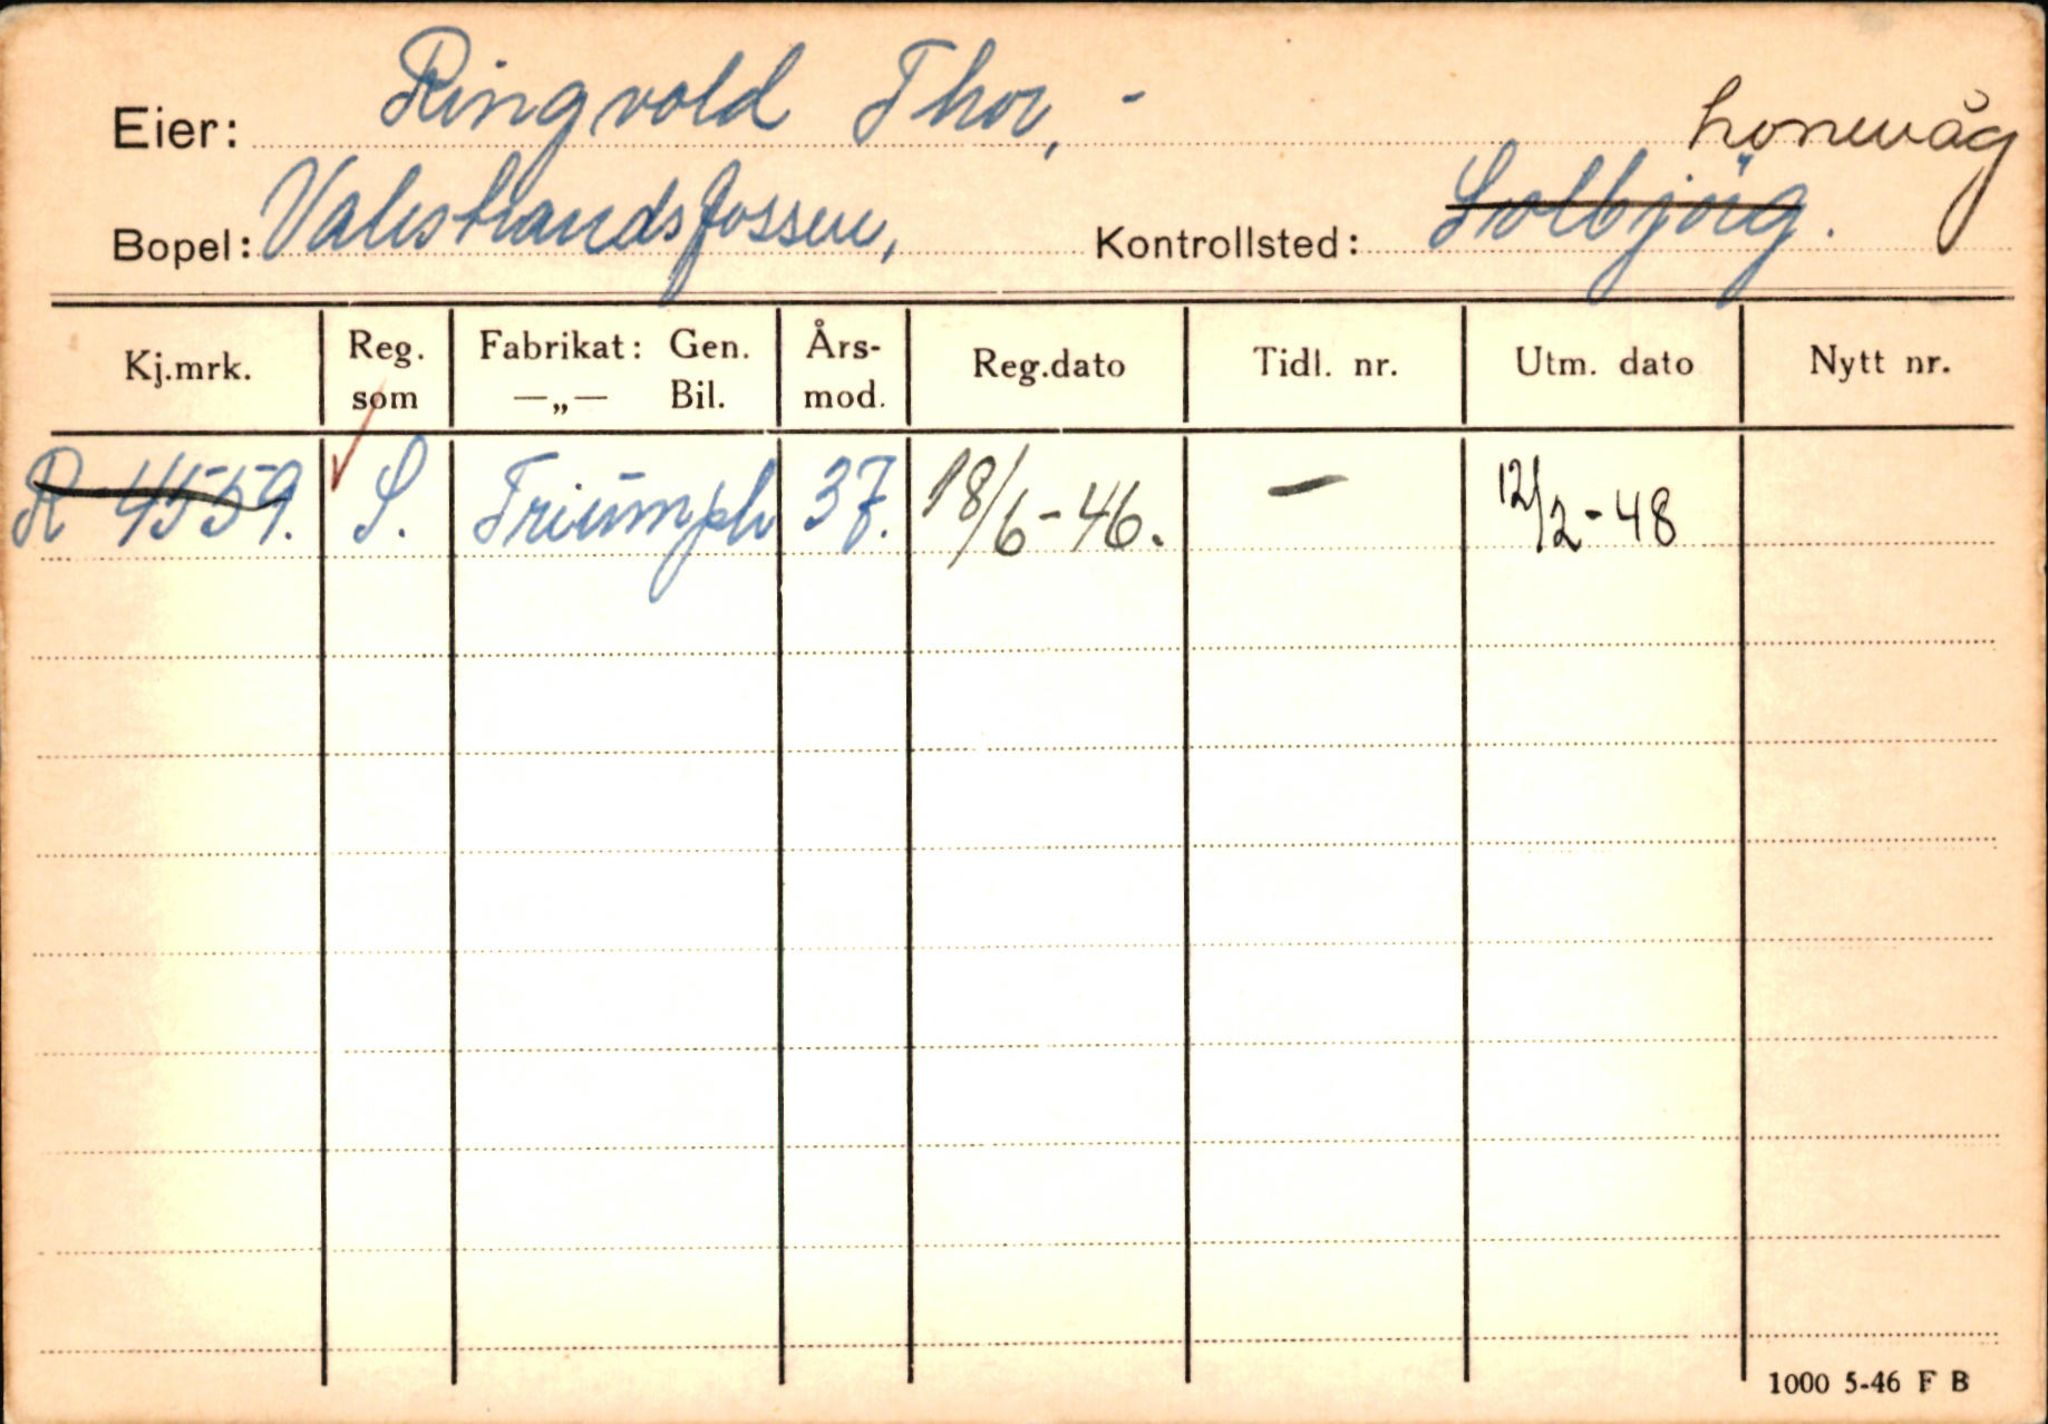 Eier: Ringvold Thor, - Lonevåg
Bopel: Valestrandsfossen, Kontrollsted: Solbjörg.
Kj.mrk. Reg. som Fabrikat: Gen. —„— Bil. Års- mod. Reg.dato Tidl. nr. Utm. dato Nytt nr.
R 4559. S. Triumph 37. 18/6-46. — 12/2-48
1000 5-46 F B